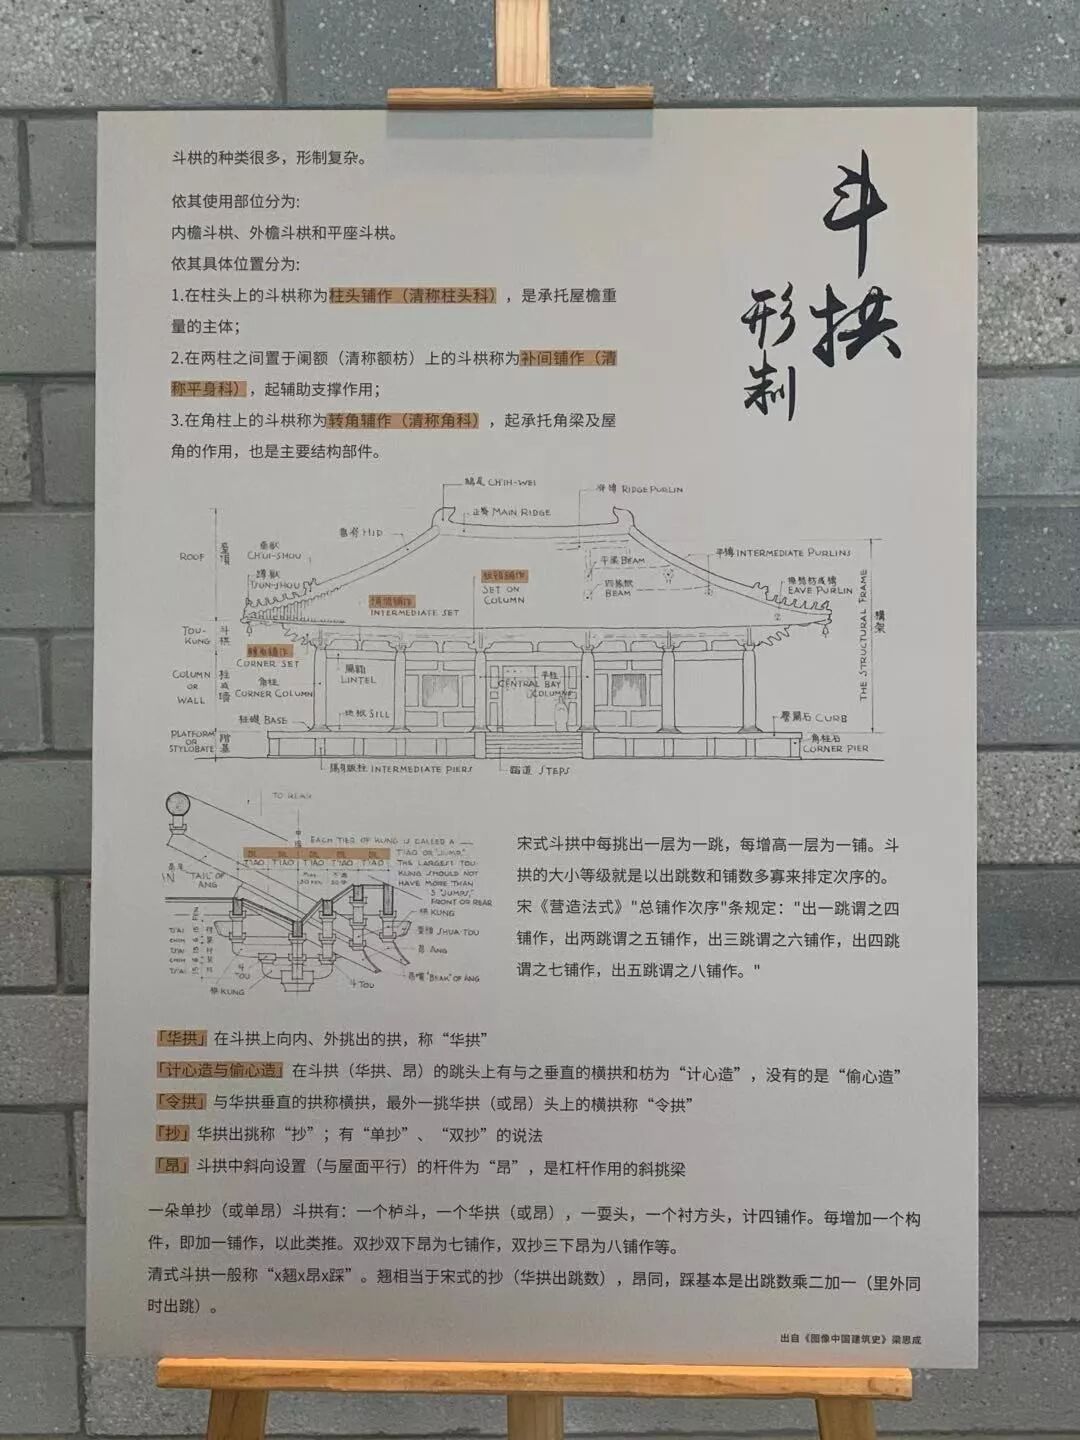 斗拱
形制
斗栱的种类很多，形制复杂。
依其使用部位分为:
内檐斗栱、外檐斗栱和平座斗栱。
依其具体位置分为:
1.在柱头上的斗栱称为柱头铺作（清称柱头科），是承托屋檐重
量的主体；
2.在两柱之间置于阑额（清称额枋）上的斗栱称为补间铺作（清
称平身科），起辅助支撑作用；
3.在角柱上的斗栱称为转角铺作（清称角科），起承托角梁及屋
角的作用，也是主要结构部件。
鴟尾 CH'IH-WEI
正脊 MAIN RIDGE
RIDGE PURLIN
HIP
ROOF
垂獸
CH'UI-SHOU
蹲獸
TUN-SHOU
平梁 BEAM
BEAM
平槫 INTERMEDIATE PURLINS
EAVE PURLIN
SET ON
COLUMN
INTERMEDIATE SET
TOU-
KUNG
斗栱
CORNER SET
COLUMN
OR
WALL
柱或墻
角柱
CORNER COLUMN
闌額
LINTEL
平柱
CENTRAL BAY
COLUMNS
THE STRUCTURAL FRAME
構架
柱礎 BASE
地栿 SILL
CURB
PLATFORM
OR
STYLOBATE
階基
角柱石
CORNER PIER
隔身版柱 INTERMEDIATE PIERS
踏道 STEPS
TO REAR
EACH TIER OF KUNG IS CALLED A
TIAO OR "JUMP."
THE LARGEST TOU-
KUNG SHOULD NOT
HAVE MORE THAN
5 "JUMPS,"
FRONT OR REAR
跳 跳 跳 跳 跳
TIAO TIAO TIAO TIAO TIAO
"TAIL" OF
ANG
栱 KUNG
耍頭 SHUA-TOU
昂 ANG
昂嘴 "BEAK" OF ANG
斗
TOU
斗 TOU
栱 KUNG
宋式斗拱中每挑出一层为一跳，每增高一层为一铺。斗
拱的大小等级就是以出跳数和铺数多寡来排定次序的。
宋《营造法式》"总铺作次序"条规定："出一跳谓之四
铺作，出两跳谓之五铺作，出三跳谓之六铺作，出四跳
谓之七铺作，出五跳谓之八铺作。"
「华拱」在斗拱上向内、外挑出的拱，称“华拱”
「计心造与偷心造」在斗拱（华拱、昂）的跳头上有与之垂直的横拱和枋为“计心造”，没有的是“偷心造”
「令拱」与华拱垂直的拱称横拱，最外一挑华拱（或昂）头上的横拱称“令拱”
「抄」华拱出挑称“抄”；有“单抄”、“双抄”的说法
「昂」斗拱中斜向设置（与屋面平行）的杆件为“昂”，是杠杆作用的斜挑梁
一朵单抄（或单昂）斗拱有：一个栌斗，一个华拱（或昂），一耍头，一个衬方头，计四铺作。每增加一个构
件，即加一铺作，以此类推。双抄双下昂为七铺作，双抄三下昂为八铺作等。
清式斗拱一般称“x翘x昂x踩”。翘相当于宋式的抄（华拱出跳数），昂同，踩基本是出跳数乘二加一（里外同
时出跳）。
出自《图像中国建筑史》梁思成